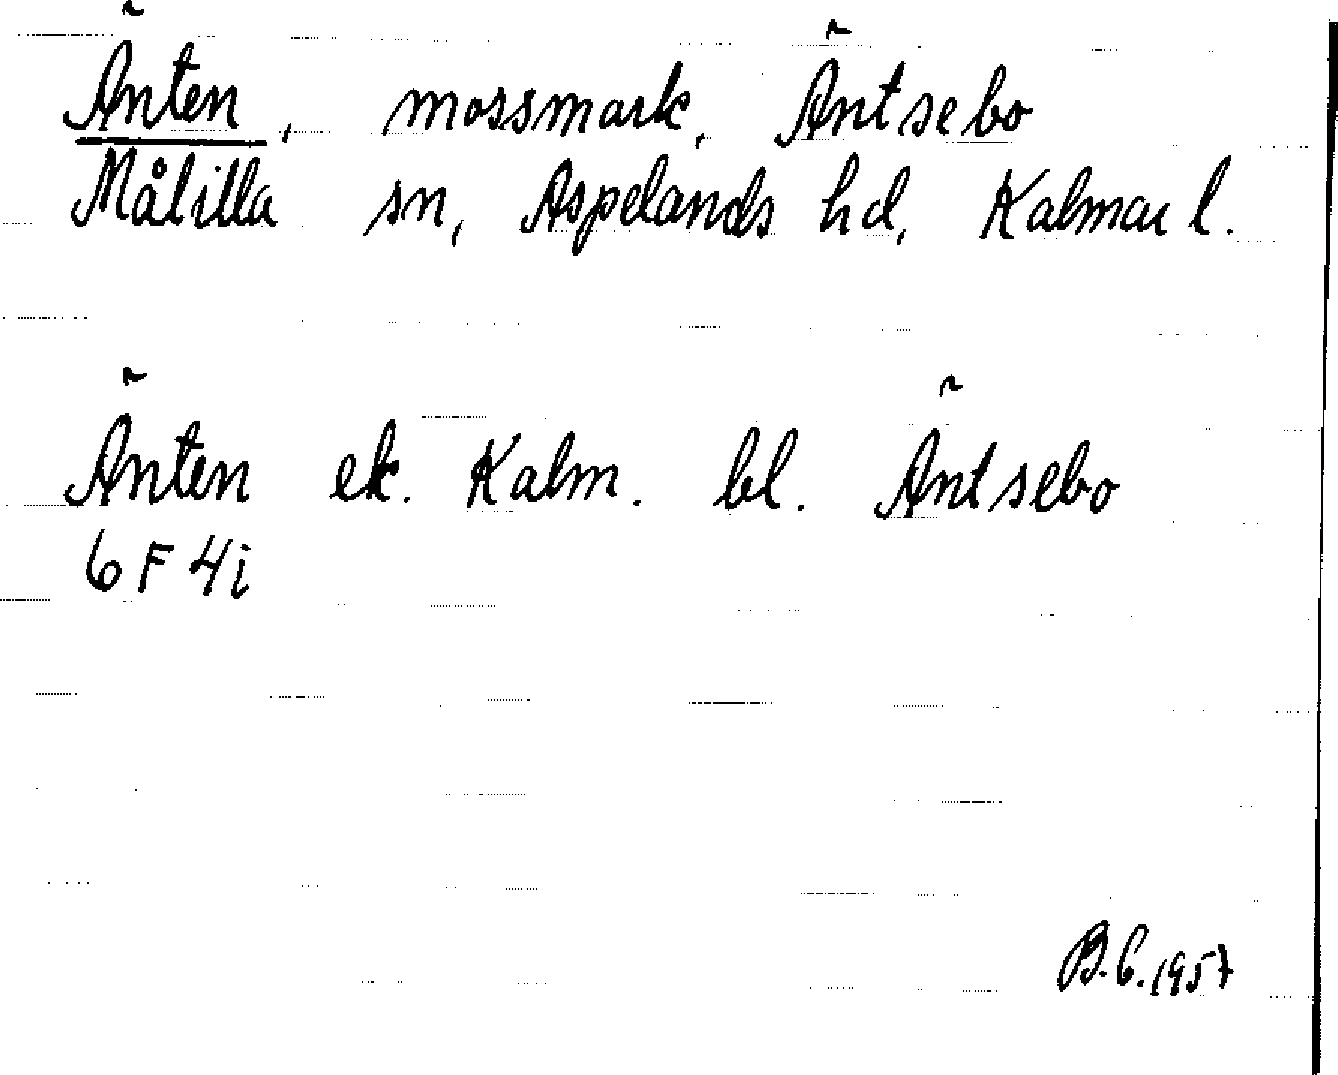 Änten, mossmark, Äntsebo
Målilla sn, Aspelands hd, Kalmar l.
Änten ek. Kalm. bl. Äntsebo
6 F 4i
B.C. 1957